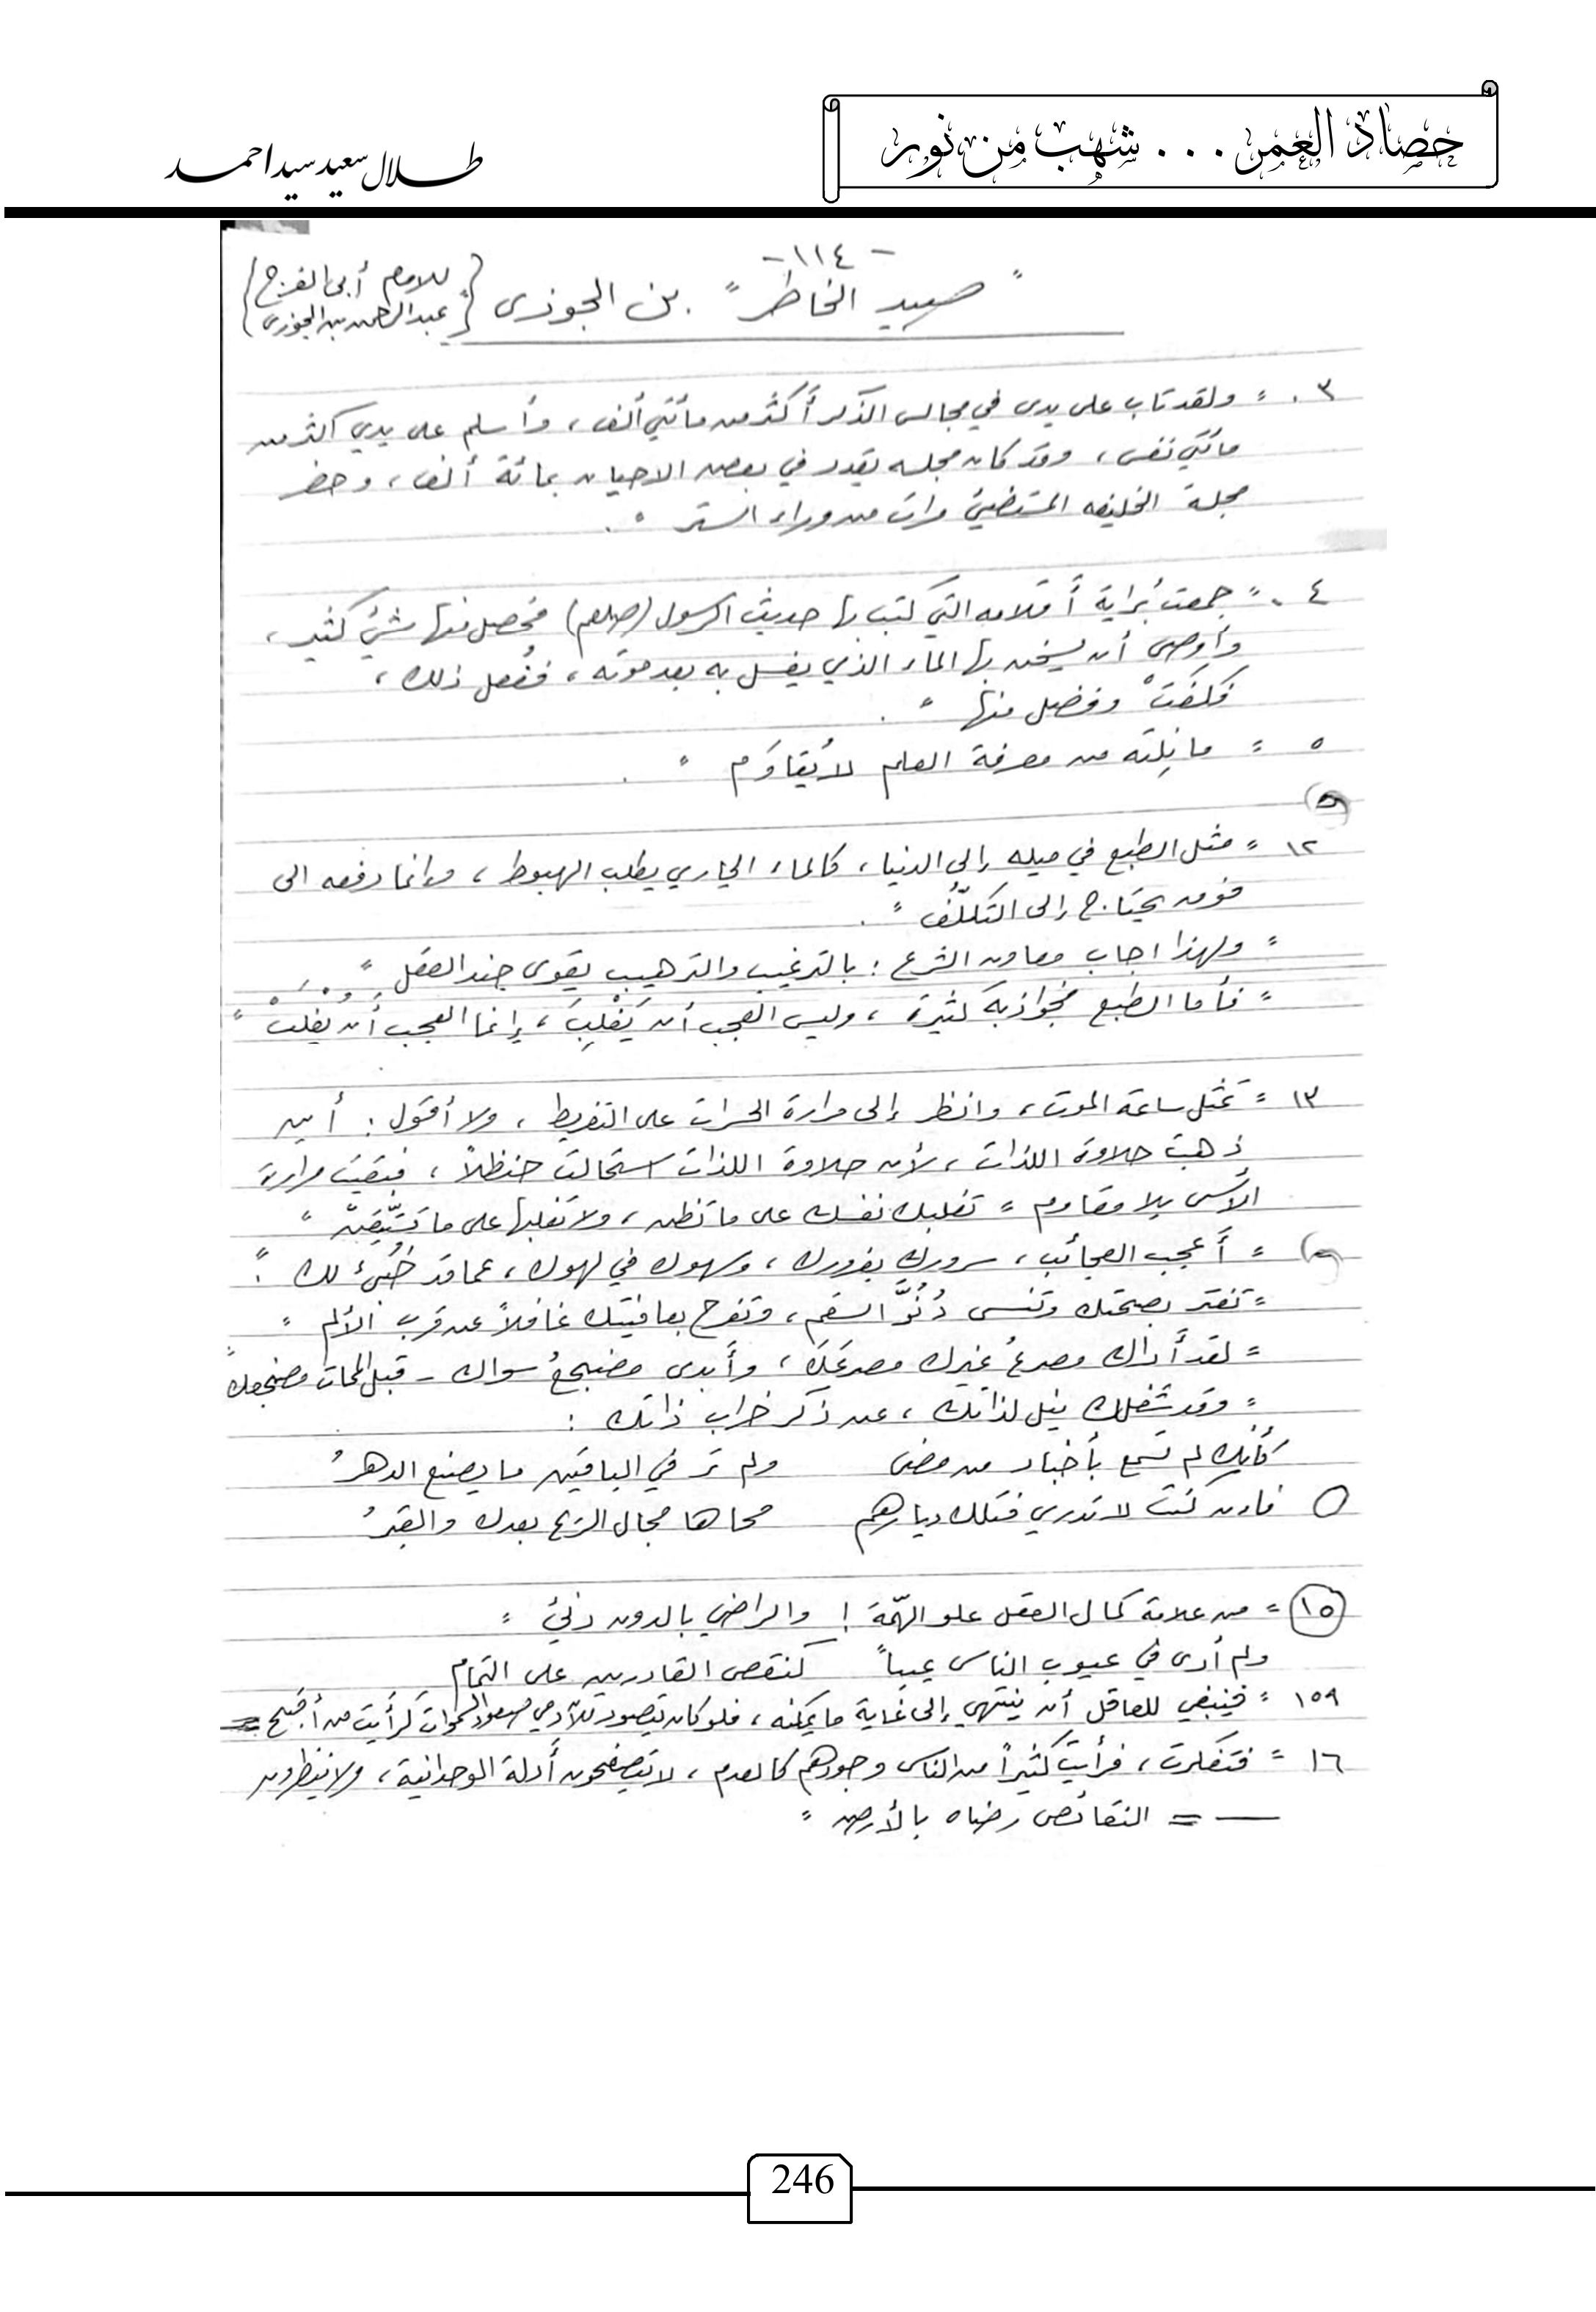 حصاد العمر . . . شهب من نور
طلال سعيد سيد احمد
- ١١٤ -
" صيد الخاطر " . بن الجوزى { للامام أبى الفرج
عبد الرحمن بن الجوزى }
٣ . " ولقد تاب على يدى في مجالس الذكر أكثر من مائتي ألف ، وأسلم على يدي اكثر من
مائتي نفس ، وقد كان مجلسه يقدر في بعض الاحيان بمائة ألف ، وحضر
مجلسة الخليفه المستضيئ مرات من وراء الستر " .
٤ . " جمعت بُراية أقلامه التي كتب بها حديث الرسول (صلعم) فحصل منها شيئ كثير ،
وأوصى أن يسخن بها الماء الذي يغسل به بعد موته ، ففُعل ذلك ،
فكفتْ وفضل منها " .
٥ " ما نِلته من معرفة العلم لا يُقاوَم " .
١٢ " مثل الطبع في ميله إلى الدنيا ، كالماء الجاري يطلب الهبوط ، وإنما رفعه الى
فوق يحتاج إلى التكلّف " .
" ولهذا اجاب معاون الشرع : بالترغيب والترهيب يقوى جند العقل "
" فأما الطبع فجواذبه كثيرة ، وليس العجب أن يَغْلِبَ ، إنما العجب أن يُغلبْ "
١٣ " تمثّل ساعة الموت ، وانظر إلى مرارة الحسرات على التفريط ، ولا أقول : أين
ذهبت حلاوة اللذات ، لأن حلاوة اللذات استحالت حنظلاً ، فبقيت مرارة
الأسى بلا مقاوم " تغلبك نفسك على ما تظن ، ولا تغلبها على ما تستيقن "
" أعجب العجائب ، سرورك بغرورك ، وسهوك في لهوك ، عما قد خُبّئ لك "
" تغتر بصحتك وتنسى دُنُوَّ السقم ، وتفرح بعافيتك غافلاً عن قرب الألم "
" لقد أراك مصرعُ غيرك مصرعَكَ ، وأبدى مضجعُ سواك - قبل الممات مضجعك "
" وقد شغلك نيل لذاتك ، عن ذكر خراب ذاتك :
كأنك لم تسمع بأخبار من مضى ولم تر في الباقين ما يصنع الدهرُ
فإن كنت لا تدري فتلك ديارهم محاها مجال الريح بعدك والقبرُ
١٥ " من علامة كمال العقل علو الهمّة ! والراضي بالدون دنيّ "
ولم أرى في عيوب الناس عيباً كنقص القادرين على التمام
١٥٩ " فينبغي للعاقل أن ينتهي إلى غاية ما يمكنه ، فلو كان يتصور للآدمي صعود السموات لرأيت من أقبح =
١٦ " فتفكرت ، فرأيت كثيراً من الناس وجودهم كالعدم ، لا يتصفحون أدلة الوحدانية ، ولا ينظرون
= النقائص رضاه بالأرض "
246